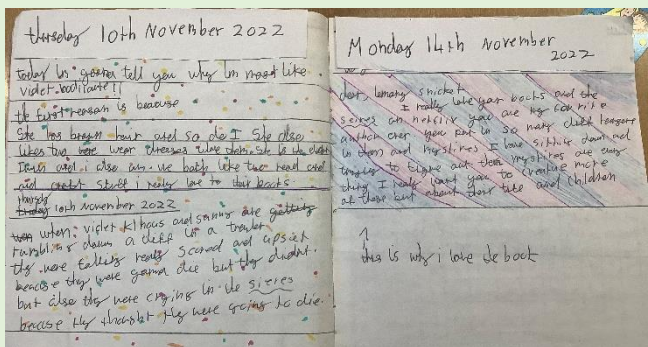 thursday 10th November 2022
today im gonna tell you why im most like
violet.
the first reason is because
She has brown hair and so do I She also
likes two wear dresses
and i also am. we both like two read and
and craft stuff i really love to their books
thursday
10th November 2022
when violet klhaus and sunny are getting
tumbling down a cliff in a trailer
thy were falling really scared and upset
because thy were gonna die but thy didnt.
but also thy were crying in the sieres
because thy thought thy were going to die.
Monday 14th November
2022
dear, lemony snicket
I really love your books and the
seires on netflix you are my favourite
author ever you put in so many cliff hangers
in them and mystires I love sitting down and
trying to figure out them mystires are every
thing I really want you to create more
of these out about there life and children
this is why i love the book